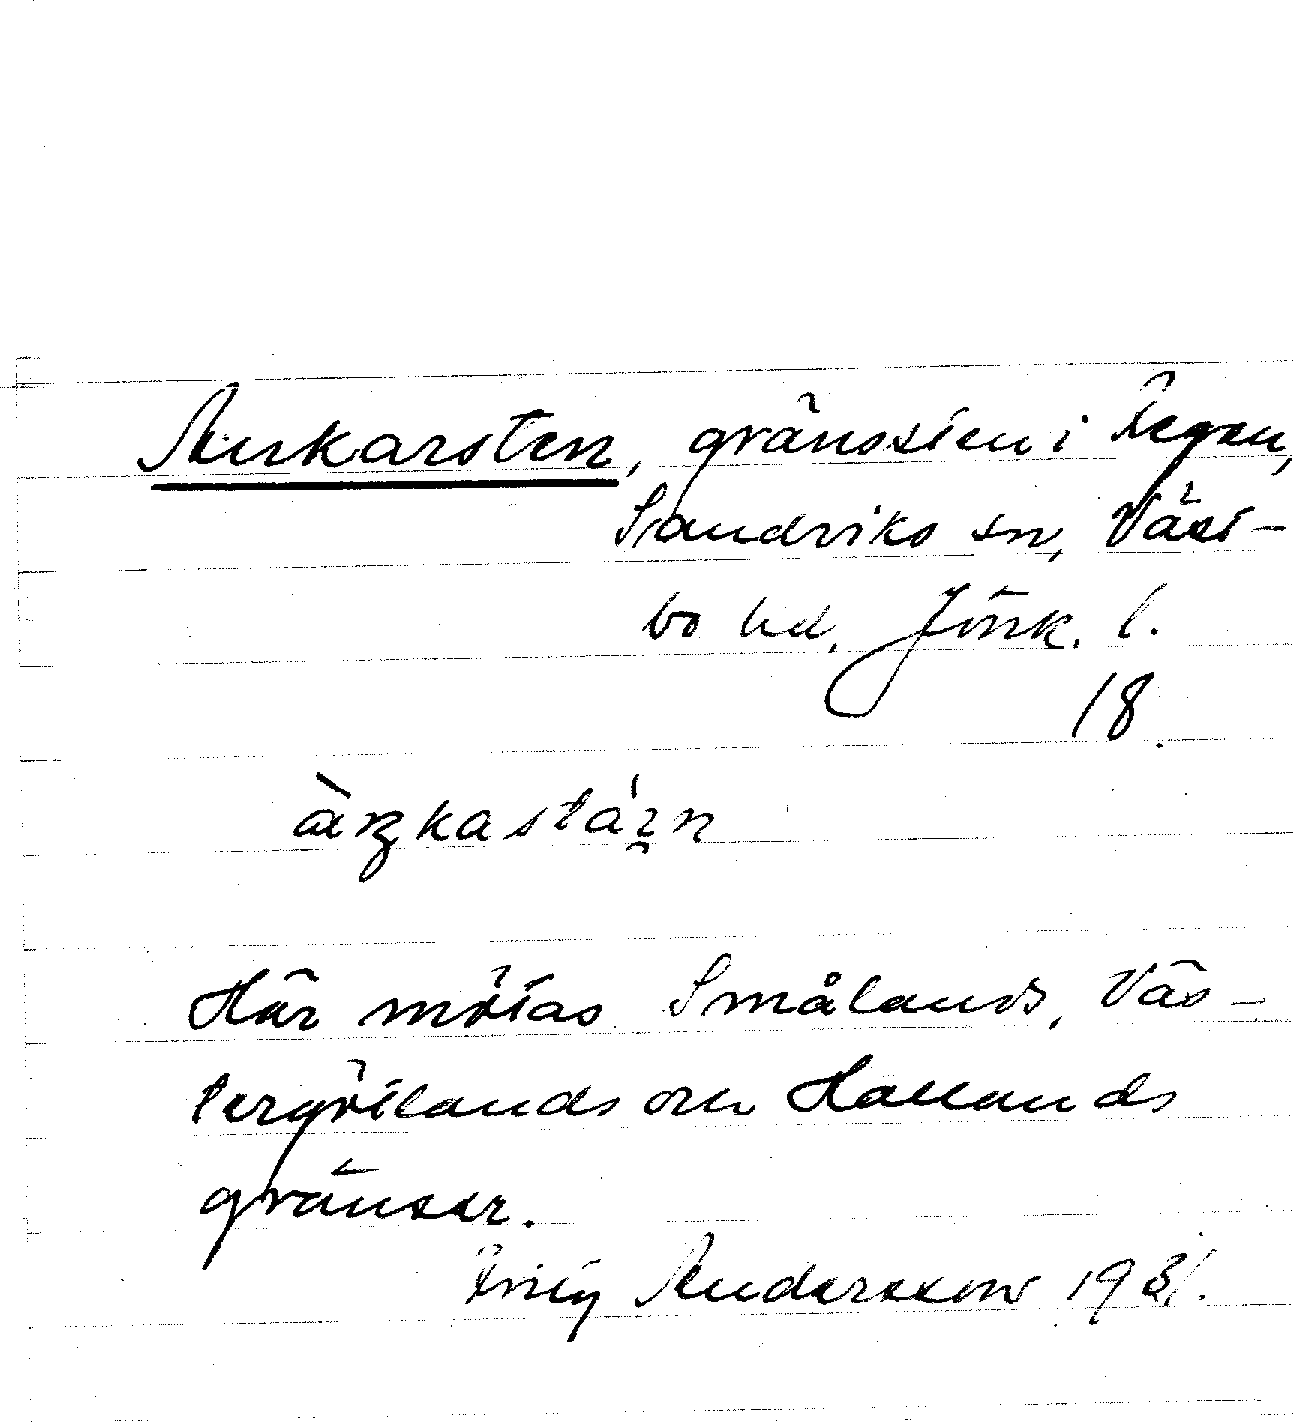 Ankarsten, gränssten i Ägen,
Sandviks sn, Väst-
bo hd, Jönk. l.
18.
Här mötas Smålands, Väs-
tergötlands och Hallands
gränser.
Andersson 1931.